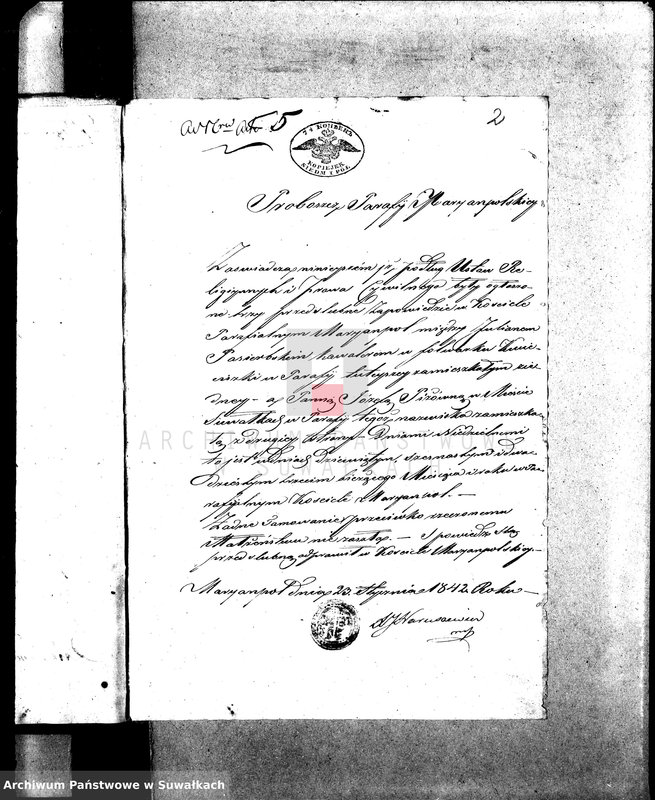 ad Nrm Akt 5
2
7½ КОПѢЕКЪ
KOPIEJEK
SIEDM I PÓŁ
Proboszcz Parafij Maryanpolskiey
Zaświadcza ninieyszém jż podług Ustaw Re-
ligiynych i Prawa Cywilnego były ogłoszo-
ne trzy przedślubne Zapowiedzie w Kościele
Parafialnym Maryanpol między Julianem
Pasierbskim kawalerem w folwarku
w Parafij tuteyszey zamieszkałym z je-
dney – a Panną Józefą w Mieście
Suwałkach w Parafij tegoż nazwiska zamieszka-
łą z drugiey strony Dniami Niedzielnemi
to jest w dniach Dziewiątym, szesnastym i dwu-
dziestym trzecim bieżącego Miesiąca i roku w Pa-
rafialnym Kościele Maryanpol. —
Żadne Tamowanie przeciwko rzeczonemu
Małżeństwu nie zaszło. — Spowiedź Stą
przedślubną odprawił w Kościele Maryanpolskiey —
Maryanpol dnia 23 Stycznia 1842 Roku —
ARCHIWUM PAŃSTWOWE
W SUWAŁKACH
Archiwum Państwowe w Suwałkach